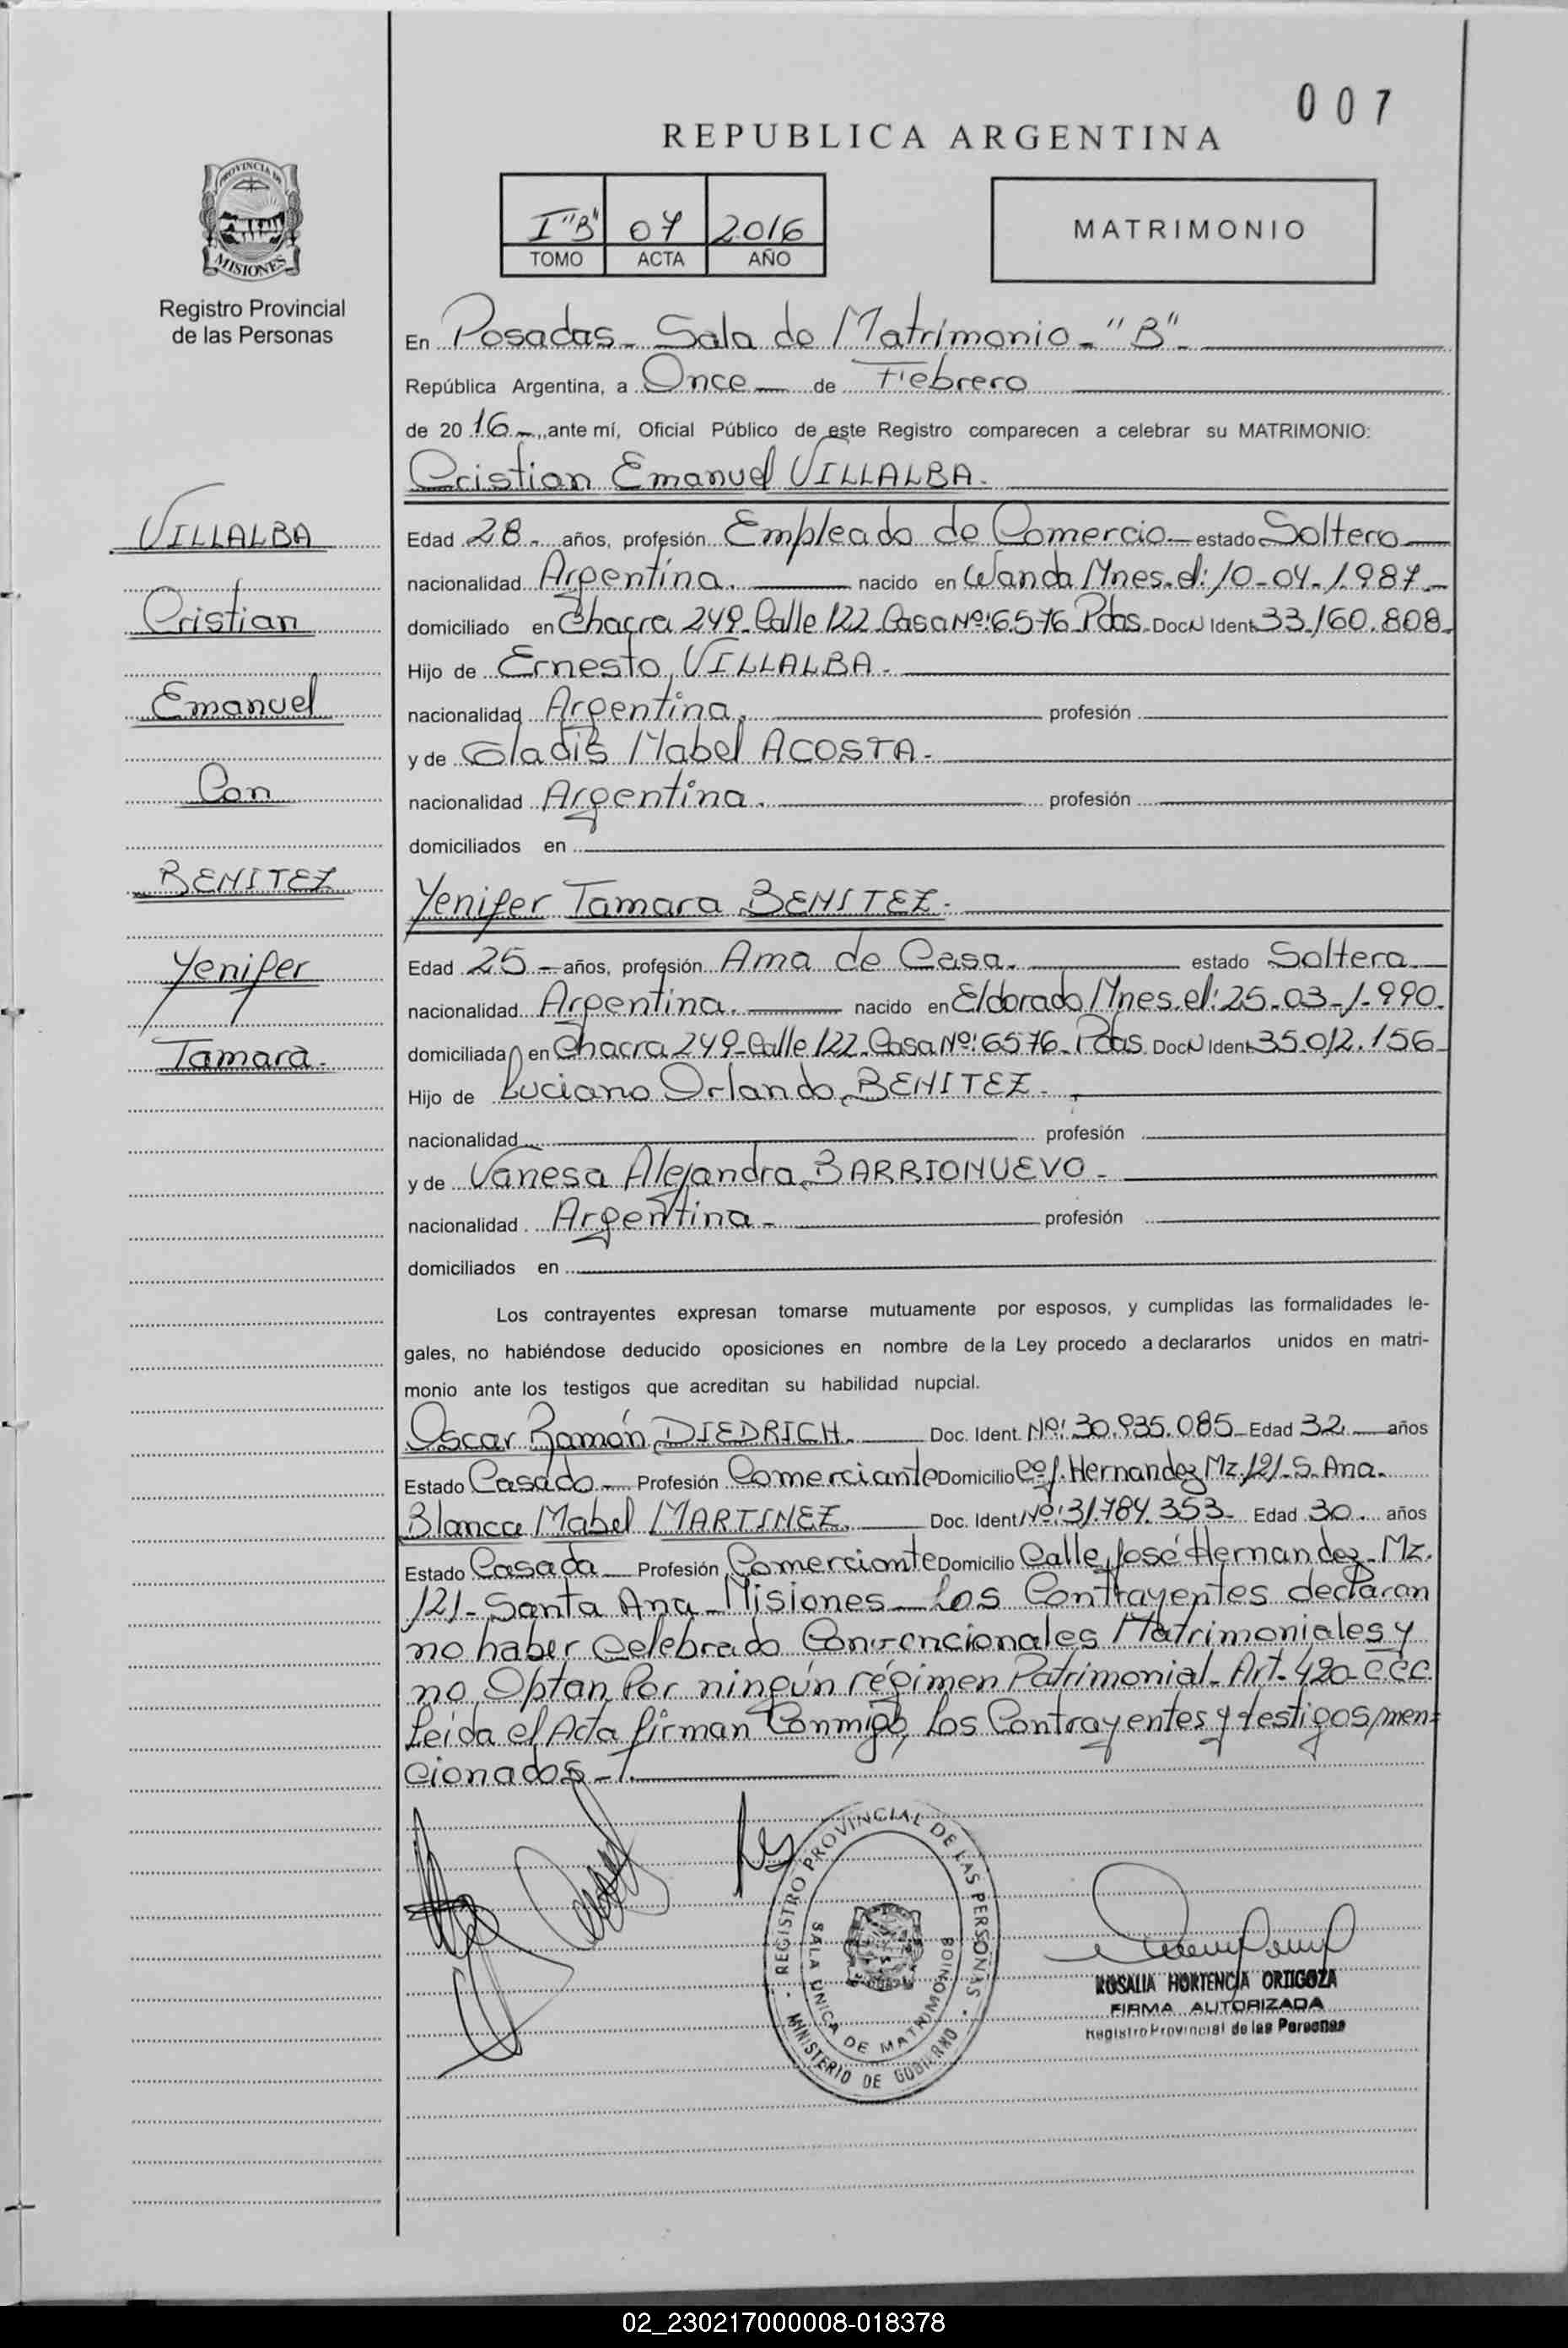 007
REPUBLICA ARGENTINA
PROVINCIA DE
MISIONES
Registro Provincial
de las Personas
I "B" 07 2016
TOMO ACTA AÑO
MATRIMONIO
En Posadas - Sala de Matrimonio - "B" -
República Argentina, a Once de Febrero
de 2016 - ante mí, Oficial Público de este Registro comparecen a celebrar su MATRIMONIO:
Cristian Emanuel VILLALBA.
VILLALBA
Cristian
Emanuel
Con
BENITEZ
Yenifer
Tamara.
Edad 28 - años, profesión Empleado de Comercio - estado Soltero
nacionalidad Argentina. nacido en Wanda Mnes. el: 10-04-1.987 -
domiciliado en Chacra 249 - Calle 122 - Casa Nº: 6576 - Pdas. Doc N Ident 33.160.808.
Hijo de Ernesto VILLALBA -
nacionalidad Argentina. profesión
y de Gladis Mabel ACOSTA -
nacionalidad Argentina. profesión
domiciliados en
Yenifer Tamara BENITEZ -
Edad 25 - años, profesión Ama de Casa. estado Soltera
nacionalidad Argentina. nacido en Eldorado Mnes. el: 25-03-1.990.
domiciliada en Chacra 249 - Calle 122 - Casa Nº: 6576 - Pdas. Doc N Ident 35.012.156
Hijo de Luciano Orlando BENITEZ -
nacionalidad profesión
y de Vanesa Alejandra BARRIONUEVO -
nacionalidad Argentina - profesión
domiciliados en
Los contrayentes expresan tomarse mutuamente por esposos, y cumplidas las formalidades le-
gales, no habiéndose deducido oposiciones en nombre de la Ley procedo a declararlos unidos en matri-
monio ante los testigos que acreditan su habilidad nupcial.
Oscar Ramón DIEDRICH. Doc. Ident. Nº: 30.935.085 - Edad 32 años
Estado Casado - Profesión Comerciante Domicilio J. Hernandez Mz. 121 - S. Ana.
Blanca Mabel MARTINEZ. Doc. Ident Nº: 31.784.353 - Edad 30 años
Estado Casada Profesión Comerciante Domicilio Calle José Hernandez - Mz.
121 - Santa Ana - Misiones - Los Contrayentes declaran
no haber Celebrado Convencionales Matrimoniales y
no Optan Por ningún régimen Patrimonial - Art - 420 - C.C.C.
Leida el Acta firman Conmigo, los Contrayentes y testigos men=
cionados -
REGISTRO PROVINCIAL DE LAS PERSONAS
SALA UNICA DE MATRIMONIOS
MINISTERIO DE GOBIERNO
ROSALIA HORTENCIA ORTIGOZA
FIRMA AUTORIZADA
Registro Provincial de las Personas
02_230217000008-018378